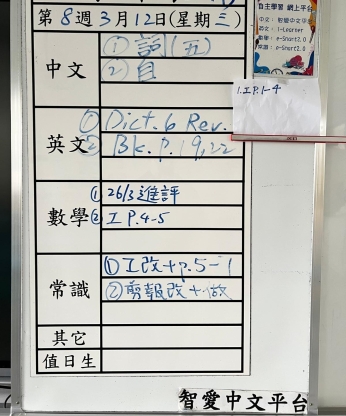 第8週3月12日(星期三)
自主學習 網上平台
中文：智愛中文平台
英文：i-Learner
數學：e-Smart2.0
常識：e-Smart2.0
1.工P.1-4
中文
①詞(五)
②自
英文
①Dict.6 Rev.
②Bk.P.19,22
數學
①26/3進評
②工P.4-5
常識
①工改+p.5-1
②剪報改+做
其它
值日生
智愛中文平台